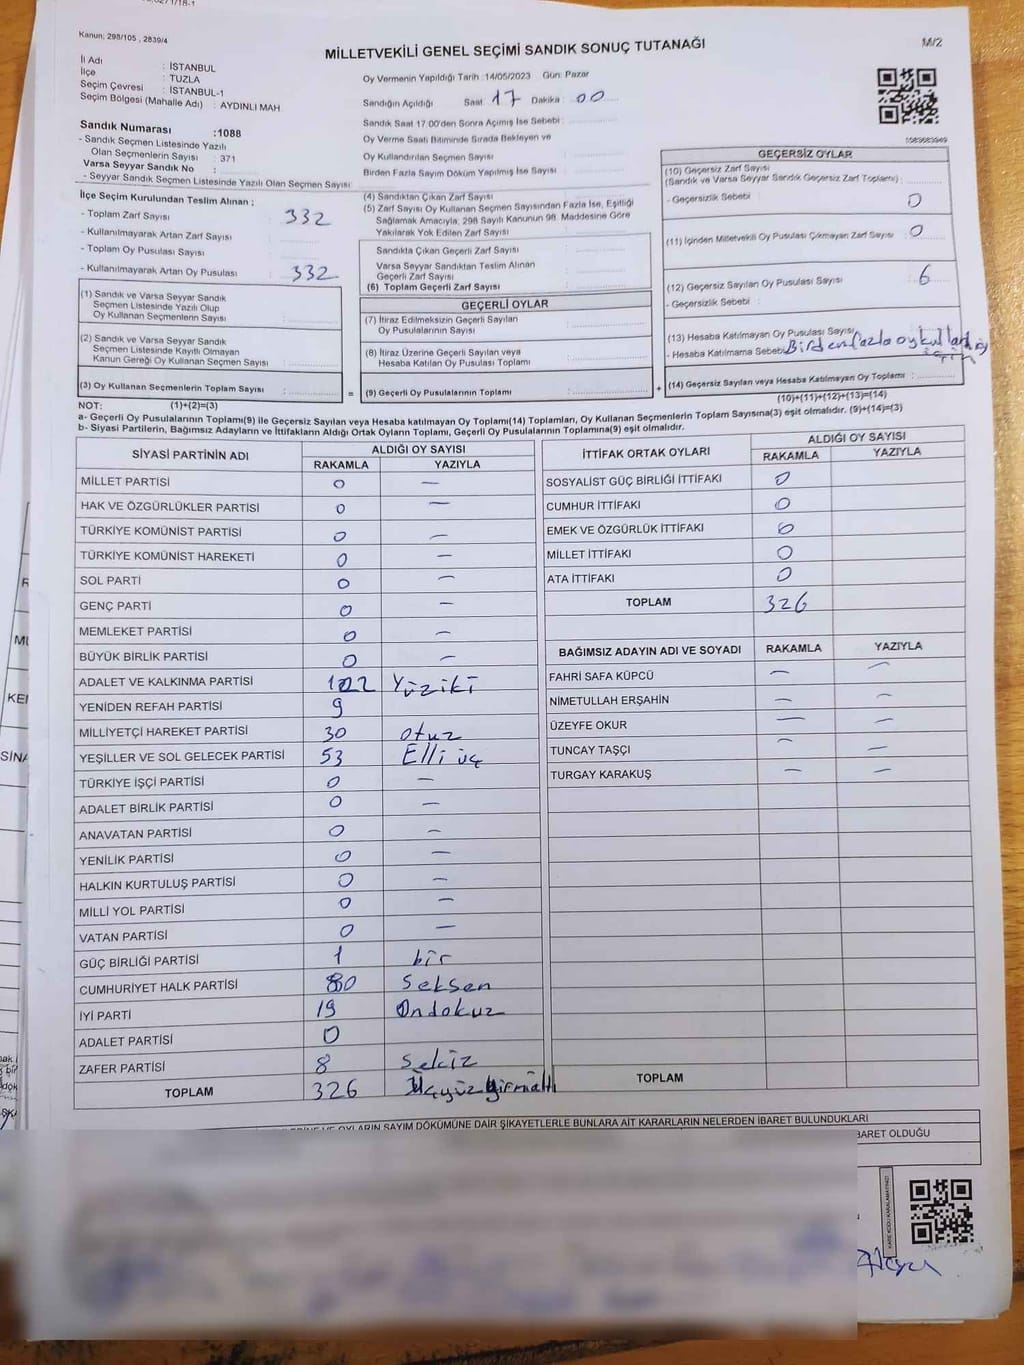 Kanun; 298/105 , 2839/4
MİLLETVEKİLİ GENEL SEÇİMİ SANDIK SONUÇ TUTANAĞI
M/2
İl Adı : İSTANBUL
İlçe : TUZLA
Seçim Çevresi : İSTANBUL-1
Seçim Bölgesi (Mahalle Adı) : AYDINLI MAH
Sandık Numarası :1088
- Sandık Seçmen Listesinde Yazılı
Olan Seçmenlerin Sayısı : 371
Varsa Seyyar Sandık No :
- Seyyar Sandık Seçmen Listesinde Yazılı Olan Seçmen Sayısı
Oy Vermenin Yapıldığı Tarih :14/05/2023 Gün: Pazar
Sandığın Açıldığı Saat 17 Dakika : 00
Sandık Saat 17:00'den Sonra Açımış İse Sebebi :
Oy Verme Saati Bitiminde Sırada Bekleyen ve
Oy Kullandırılan Seçmen Sayısı :
Birden Fazla Sayım Döküm Yapılmış İse Sayısı :
1083683949
İlçe Seçim Kurulundan Teslim Alınan ;
- Toplam Zarf Sayısı : 332
- Kullanılmayarak Artan Zarf Sayısı :
- Toplam Oy Pusulası Sayısı :
- Kullanılmayarak Artan Oy Pusulası : 332
(1) Sandık ve Varsa Seyyar Sandık
Seçmen Listesinde Yazılı Olup
Oy Kullanan Seçmenlerin Sayısı :
(2) Sandık ve Varsa Seyyar Sandık
Seçmen Listesinde Kayıtlı Olmayan
Kanun Gereği Oy Kullanan Seçmen Sayısı :
(3) Oy Kullanan Seçmenlerin Toplam Sayısı :
(1)+(2)=(3)
(4) Sandıktan Çıkan Zarf Sayısı :
(5) Zarf Sayısı Oy Kullanan Seçmen Sayısından Fazla İse, Eşitliği
Sağlamak Amacıyla, 298 Sayılı Kanunun 98. Maddesine Göre
Yakılarak Yok Edilen Zarf Sayısı :
Sandıkta Çıkan Geçerli Zarf Sayısı :
Varsa Seyyar Sandıktan Teslim Alınan
Geçerli Zarf Sayısı :
(6) Toplam Geçerli Zarf Sayısı :
GEÇERLİ OYLAR
(7) İtiraz Edilmeksizin Geçerli Sayılan
Oy Pusulalarının Sayısı :
(8) İtiraz Üzerine Geçerli Sayılan veya
Hesaba Katılan Oy Pusulası Toplamı :
= (9) Geçerli Oy Pusulalarının Toplamı :
GEÇERSİZ OYLAR
(10) Geçersiz Zarf Sayısı
(Sandık ve Varsa Seyyar Sandık Geçersiz Zarf Toplamı) :
- Geçersizlik Sebebi : 0
(11) İçinden Milletvekili Oy Pusulası Çıkmayan Zarf Sayısı : 0
(12) Geçersiz Sayılan Oy Pusulası Sayısı : 6
- Geçersizlik Sebebi :
(13) Hesaba Katılmayan Oy Pusulası Sayısı
- Hesaba Katılmama Sebebi Birden fazla oy
+ (14) Geçersiz Sayılan veya Hesaba Katılmayan Oy Toplamı :
(10)+(11)+(12)+(13)=(14)
NOT:
a- Geçerli Oy Pusulalarının Toplamı(9) ile Geçersiz Sayılan veya Hesaba katılmayan Oy Toplamı(14) Toplamları, Oy Kullanan Seçmenlerin Toplam Sayısına(3) eşit olmalıdır. (9)+(14)=(3)
b- Siyasi Partilerin, Bağımsız Adayların ve İttifakların Aldığı Ortak Oyların Toplamı, Geçerli Oy Pusulalarının Toplamına(9) eşit olmalıdır.
SİYASİ PARTİNİN ADI ALDIĞI OY SAYISI
RAKAMLA YAZIYLA
MİLLET PARTİSİ 0 —
HAK VE ÖZGÜRLÜKLER PARTİSİ 0 —
TÜRKİYE KOMÜNİST PARTİSİ 0 —
TÜRKİYE KOMÜNİST HAREKETİ 0 —
SOL PARTİ 0 —
GENÇ PARTİ 0 —
MEMLEKET PARTİSİ 0 —
BÜYÜK BİRLİK PARTİSİ 0 —
ADALET VE KALKINMA PARTİSİ 122 Yüziki
YENİDEN REFAH PARTİSİ 9
MİLLİYETÇİ HAREKET PARTİSİ 30 otuz
YEŞİLLER VE SOL GELECEK PARTİSİ 53 Elli üç
TÜRKİYE İŞÇİ PARTİSİ 0 —
ADALET BİRLİK PARTİSİ 0 —
ANAVATAN PARTİSİ 0 —
YENİLİK PARTİSİ 0 —
HALKIN KURTULUŞ PARTİSİ 0 —
MİLLİ YOL PARTİSİ 0 —
VATAN PARTİSİ 0 —
GÜÇ BİRLİĞİ PARTİSİ 1 bir
CUMHURİYET HALK PARTİSİ 80 Seksen
İYİ PARTİ 19 Ondokuz
ADALET PARTİSİ 0
ZAFER PARTİSİ 8 Sekiz
TOPLAM 326 Üçyüz yirmialtı
İTTİFAK ORTAK OYLARI ALDIĞI OY SAYISI
RAKAMLA YAZIYLA
SOSYALİST GÜÇ BİRLİĞİ İTTİFAKI 0
CUMHUR İTTİFAKI 0
EMEK VE ÖZGÜRLÜK İTTİFAKI 0
MİLLET İTTİFAKI 0
ATA İTTİFAKI 0
TOPLAM 326
BAĞIMSIZ ADAYIN ADI VE SOYADI RAKAMLA YAZIYLA
FAHRİ SAFA KÜPCÜ — —
NİMETULLAH ERŞAHİN — —
ÜZEYFE OKUR — —
TUNCAY TAŞÇI — —
TURGAY KARAKUŞ — —
TOPLAM
OYLARIN SAYIM DÖKÜMÜNE DAİR ŞİKAYETLERLE BUNLARA AİT KARARLARIN NELERDEN İBARET BULUNDUKLARI
BARET OLDUĞU